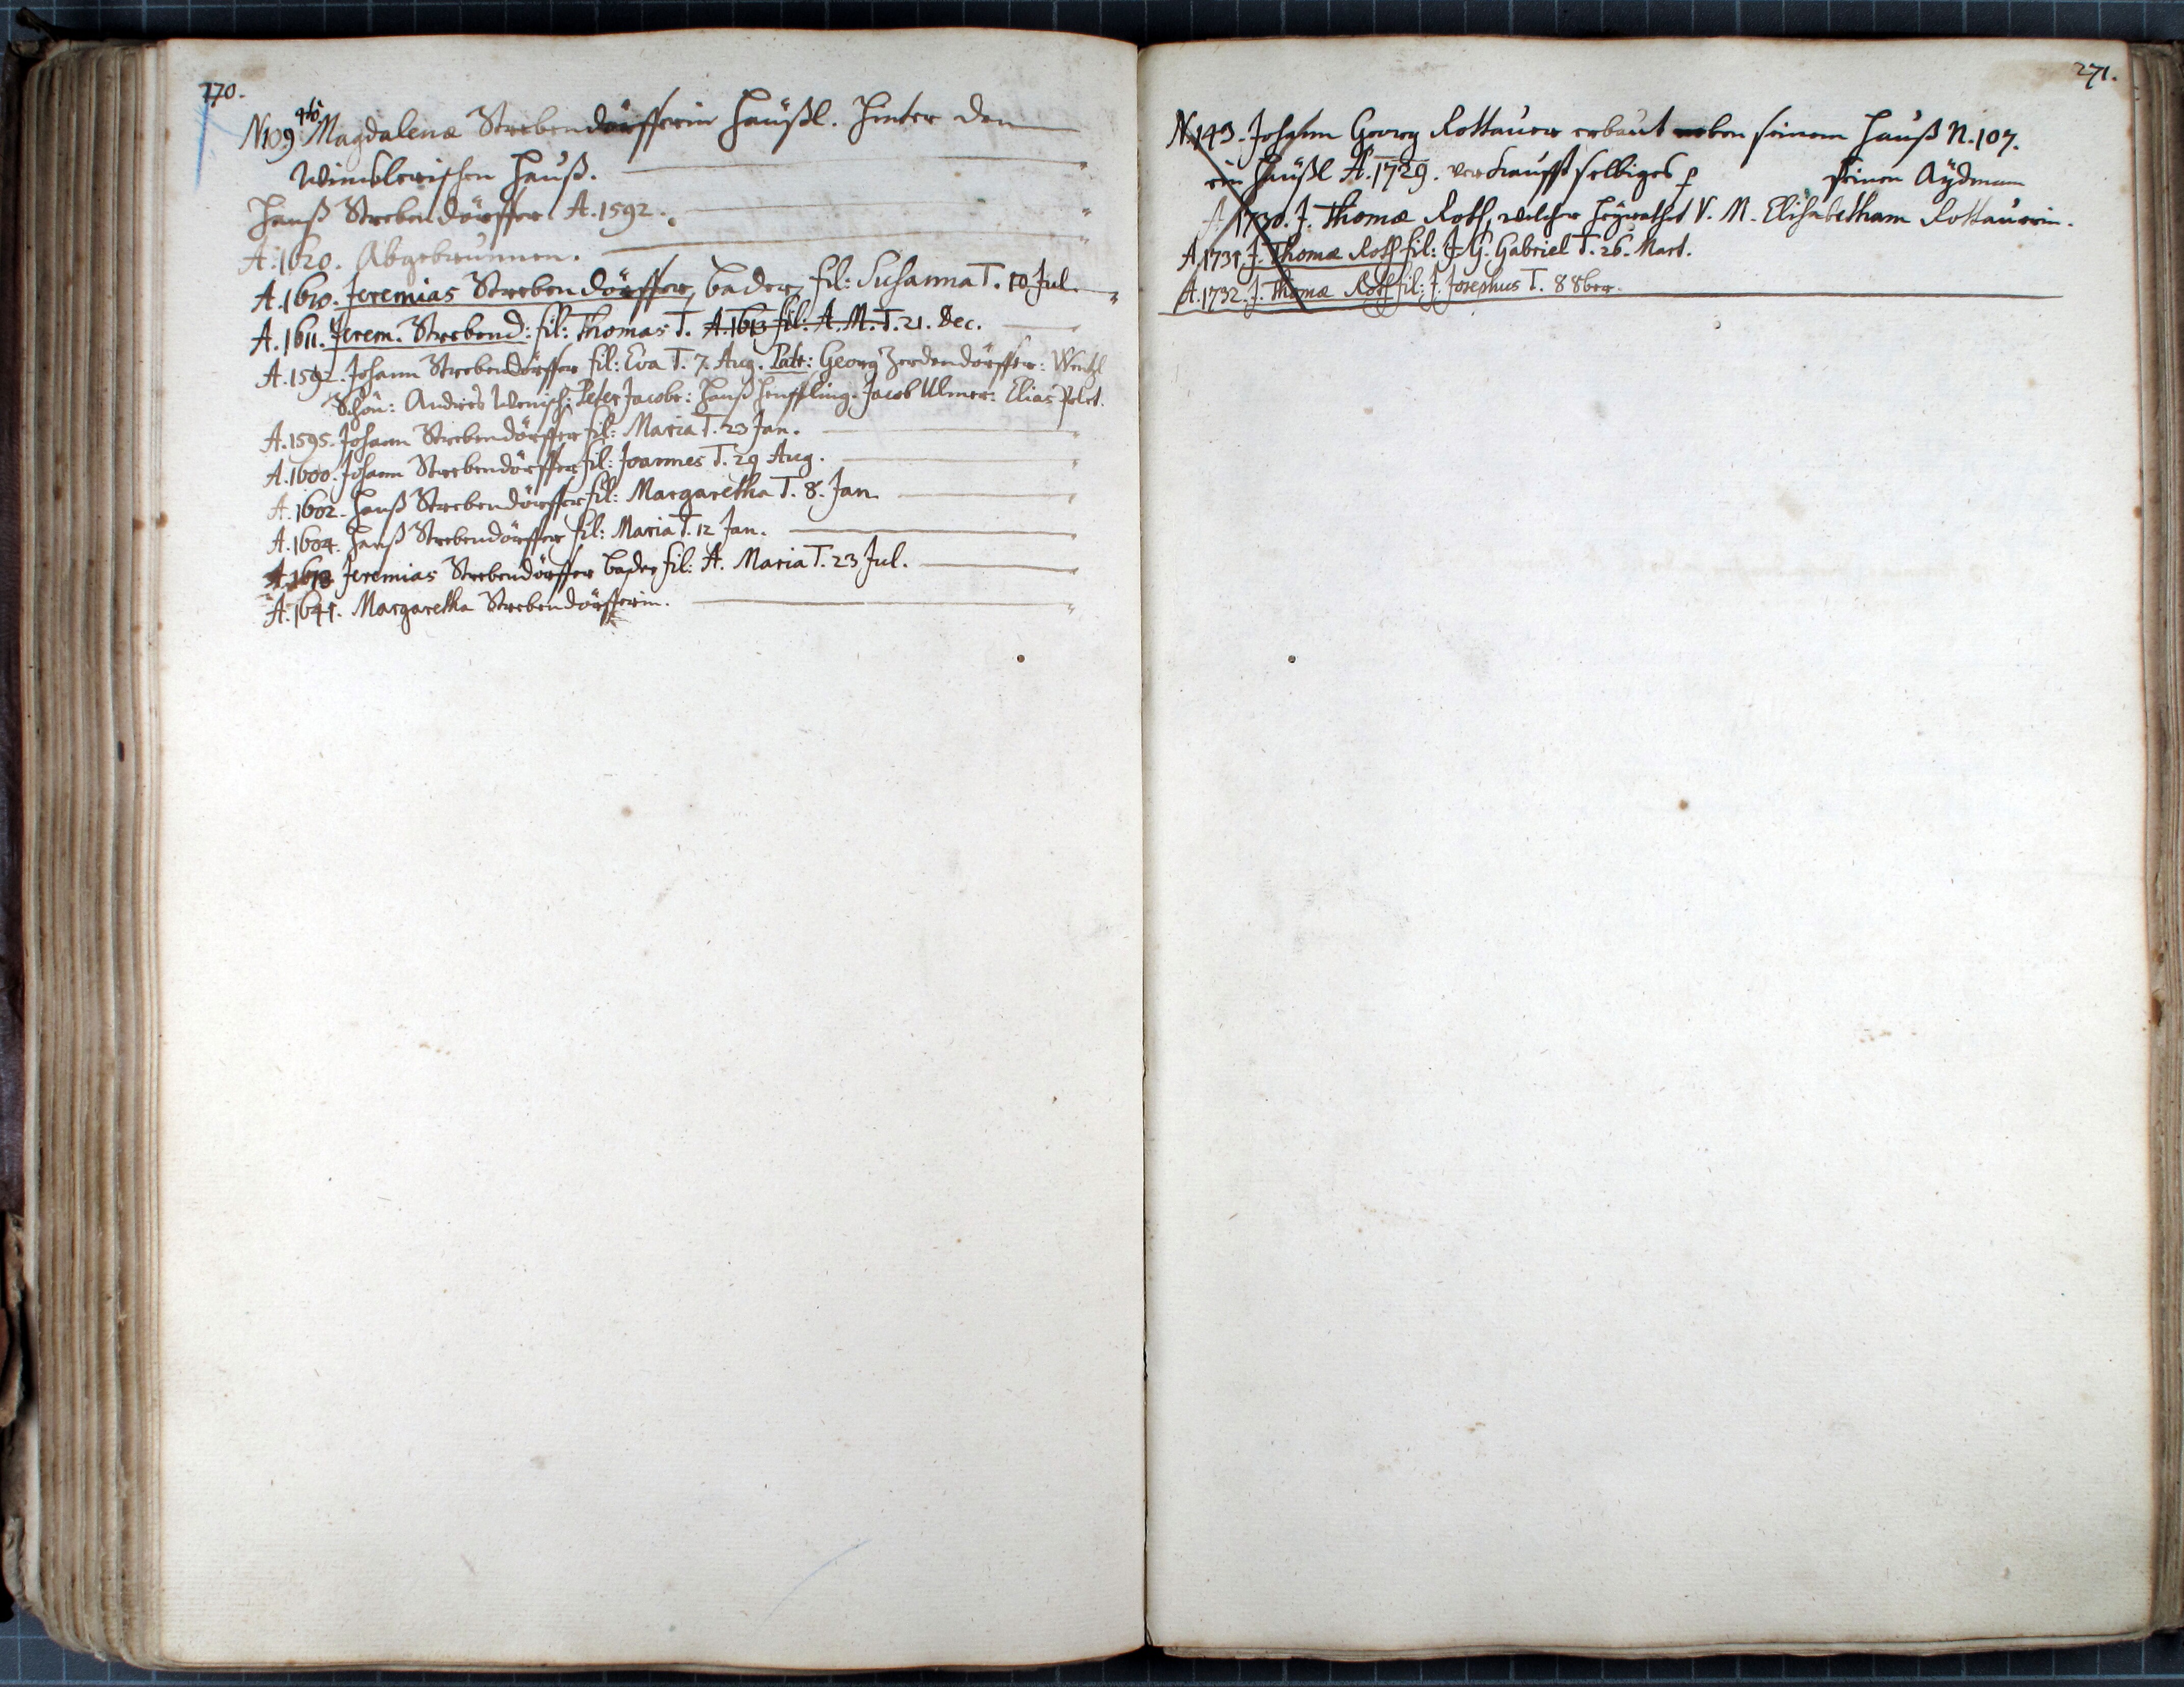 270.
N 109. 4tô Magdalenæ Strebendörfferin Häußl. Hinter dem
Wincklerischen Hauß.
Hanß Strebendörffer. A. 1592.
A. 1620. Abgebrunnen.
A. 1610. Jeremias Strebendörffer, bader, fil: Susanna T. 10 Jul.
A. 1611. Jerem. Strebend: fil: Thomas T. A. 1613 fil: A. M. T. 21. Dec.
A. 1592. Johann Strebendörffer fil: Eva T. 7. Aug. Patr: Georg Zerdendörffer: Wentzl
Schön: Andres Wenisch: Peter Jacobe: Hanß Henffling. Jacob Ulmer: Elias
A. 1595. Johann Strebendörffer fil: Maria T. 23 Jan.
A. 1600. Johann Strebendörffer fil: Joannes T. 29 Aug.
A. 1602. Hanß Strebendörffer fil: Margaretha T. 8. Jan.
A. 1604. Hanß Strebendörffer fil: Maria T. 12 Jan.
A. 1613 Jeremias Strebendörffer bader fil: A. Maria T. 23 Jul.
A. 1641. Margaretha Strebendörfferin.
271.
N. 143. Johann Georg Rottauer erbaut neben seinem Hauß N. 107.
ein Häußl A. 1729. verkaufft selbiges p seinen Aÿdmann
A. 1730. J. Thomæ Roth, welcher heÿrathet V. M. Elisabetham Rottauerin.
A. 1731. J. Thomæ Roth fil: J. G. Gabriel T. 26. Mart.
A. 1732. J. Thomæ Roth fil: J. Josephus T. 8 8ber.